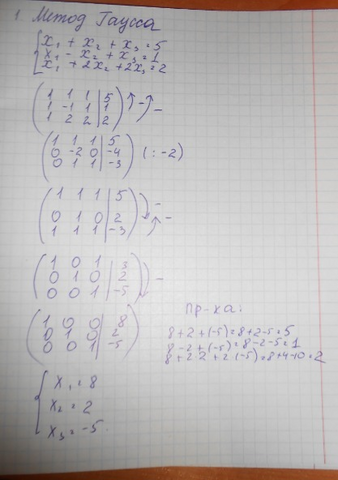 1. Метод Гаусса
x₁ + x₂ + x₃ = 5
x₁ - x₂ + x₃ = 1
x₁ + 2x₂ + 2x₃ = 2
1 1 1 | 5
1 -1 1 | 1
1 2 2 | 2
1 1 1 | 5
0 -2 0 | -4 (: -2)
0 1 1 | -3
1 1 1 | 5
0 1 0 | 2
1 1 1 | -3
1 0 1 | 3
0 1 0 | 2
0 0 1 | -5
1 0 0 | 8
0 1 0 | 2
0 0 1 | -5
Пр-ка:
8 + 2 + (-5) = 8 + 2 - 5 = 5
8 - 2 + (-5) = 8 - 2 - 5 = 1
8 + 2·2 + 2·(-5) = 8 + 4 - 10 = 2
x₁ = 8
x₂ = 2
x₃ = -5.